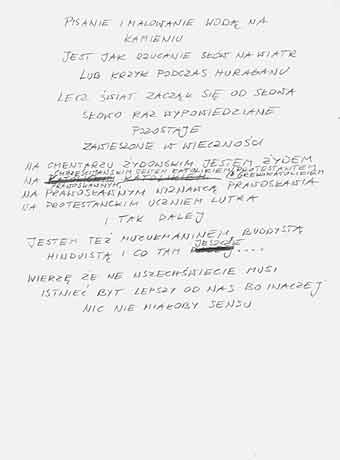 PISANIE I MALOWANIE WODĄ NA
KAMIENIU
JEST JAK RZUCANIE SŁÓW NA WIATR
LUB KRZYK PODCZAS HURAGANU
LECZ ŚWIAT ZACZĄŁ SIĘ OD SŁOWA
SŁOWO RAZ WYPOWIEDZIANE
POZOSTAJE
ZAWIESZONE W WIECZNOŚCI
NA CMENTARZU ŻYDOWSKIM JESTEM ŻYDEM
CHRZEŚCIJAŃSKIM JESTEM KATOLIKIEM PROTESTANTEM
NA KATOLIKIEM GREKOKATOLIKIEM
PRAWOSŁAWNYM
NA PRAWOSŁAWNYM WYZNAWCĄ PRAWOSŁAWIA
NA PROTESTANCKIM UCZNIEM LUTRA
I TAK DALEJ
JESTEM TEŻ MUZUŁMANINEM BUDDYSTĄ
JESZCZE
HINDUISTĄ I CO TAM ....
WIERZĘ ŻE WE WSZECHŚWIECIE MUSI
ISTNIEĆ BYT LEPSZY OD NAS BO INACZEJ
NIC NIE MIAŁOBY SENSU